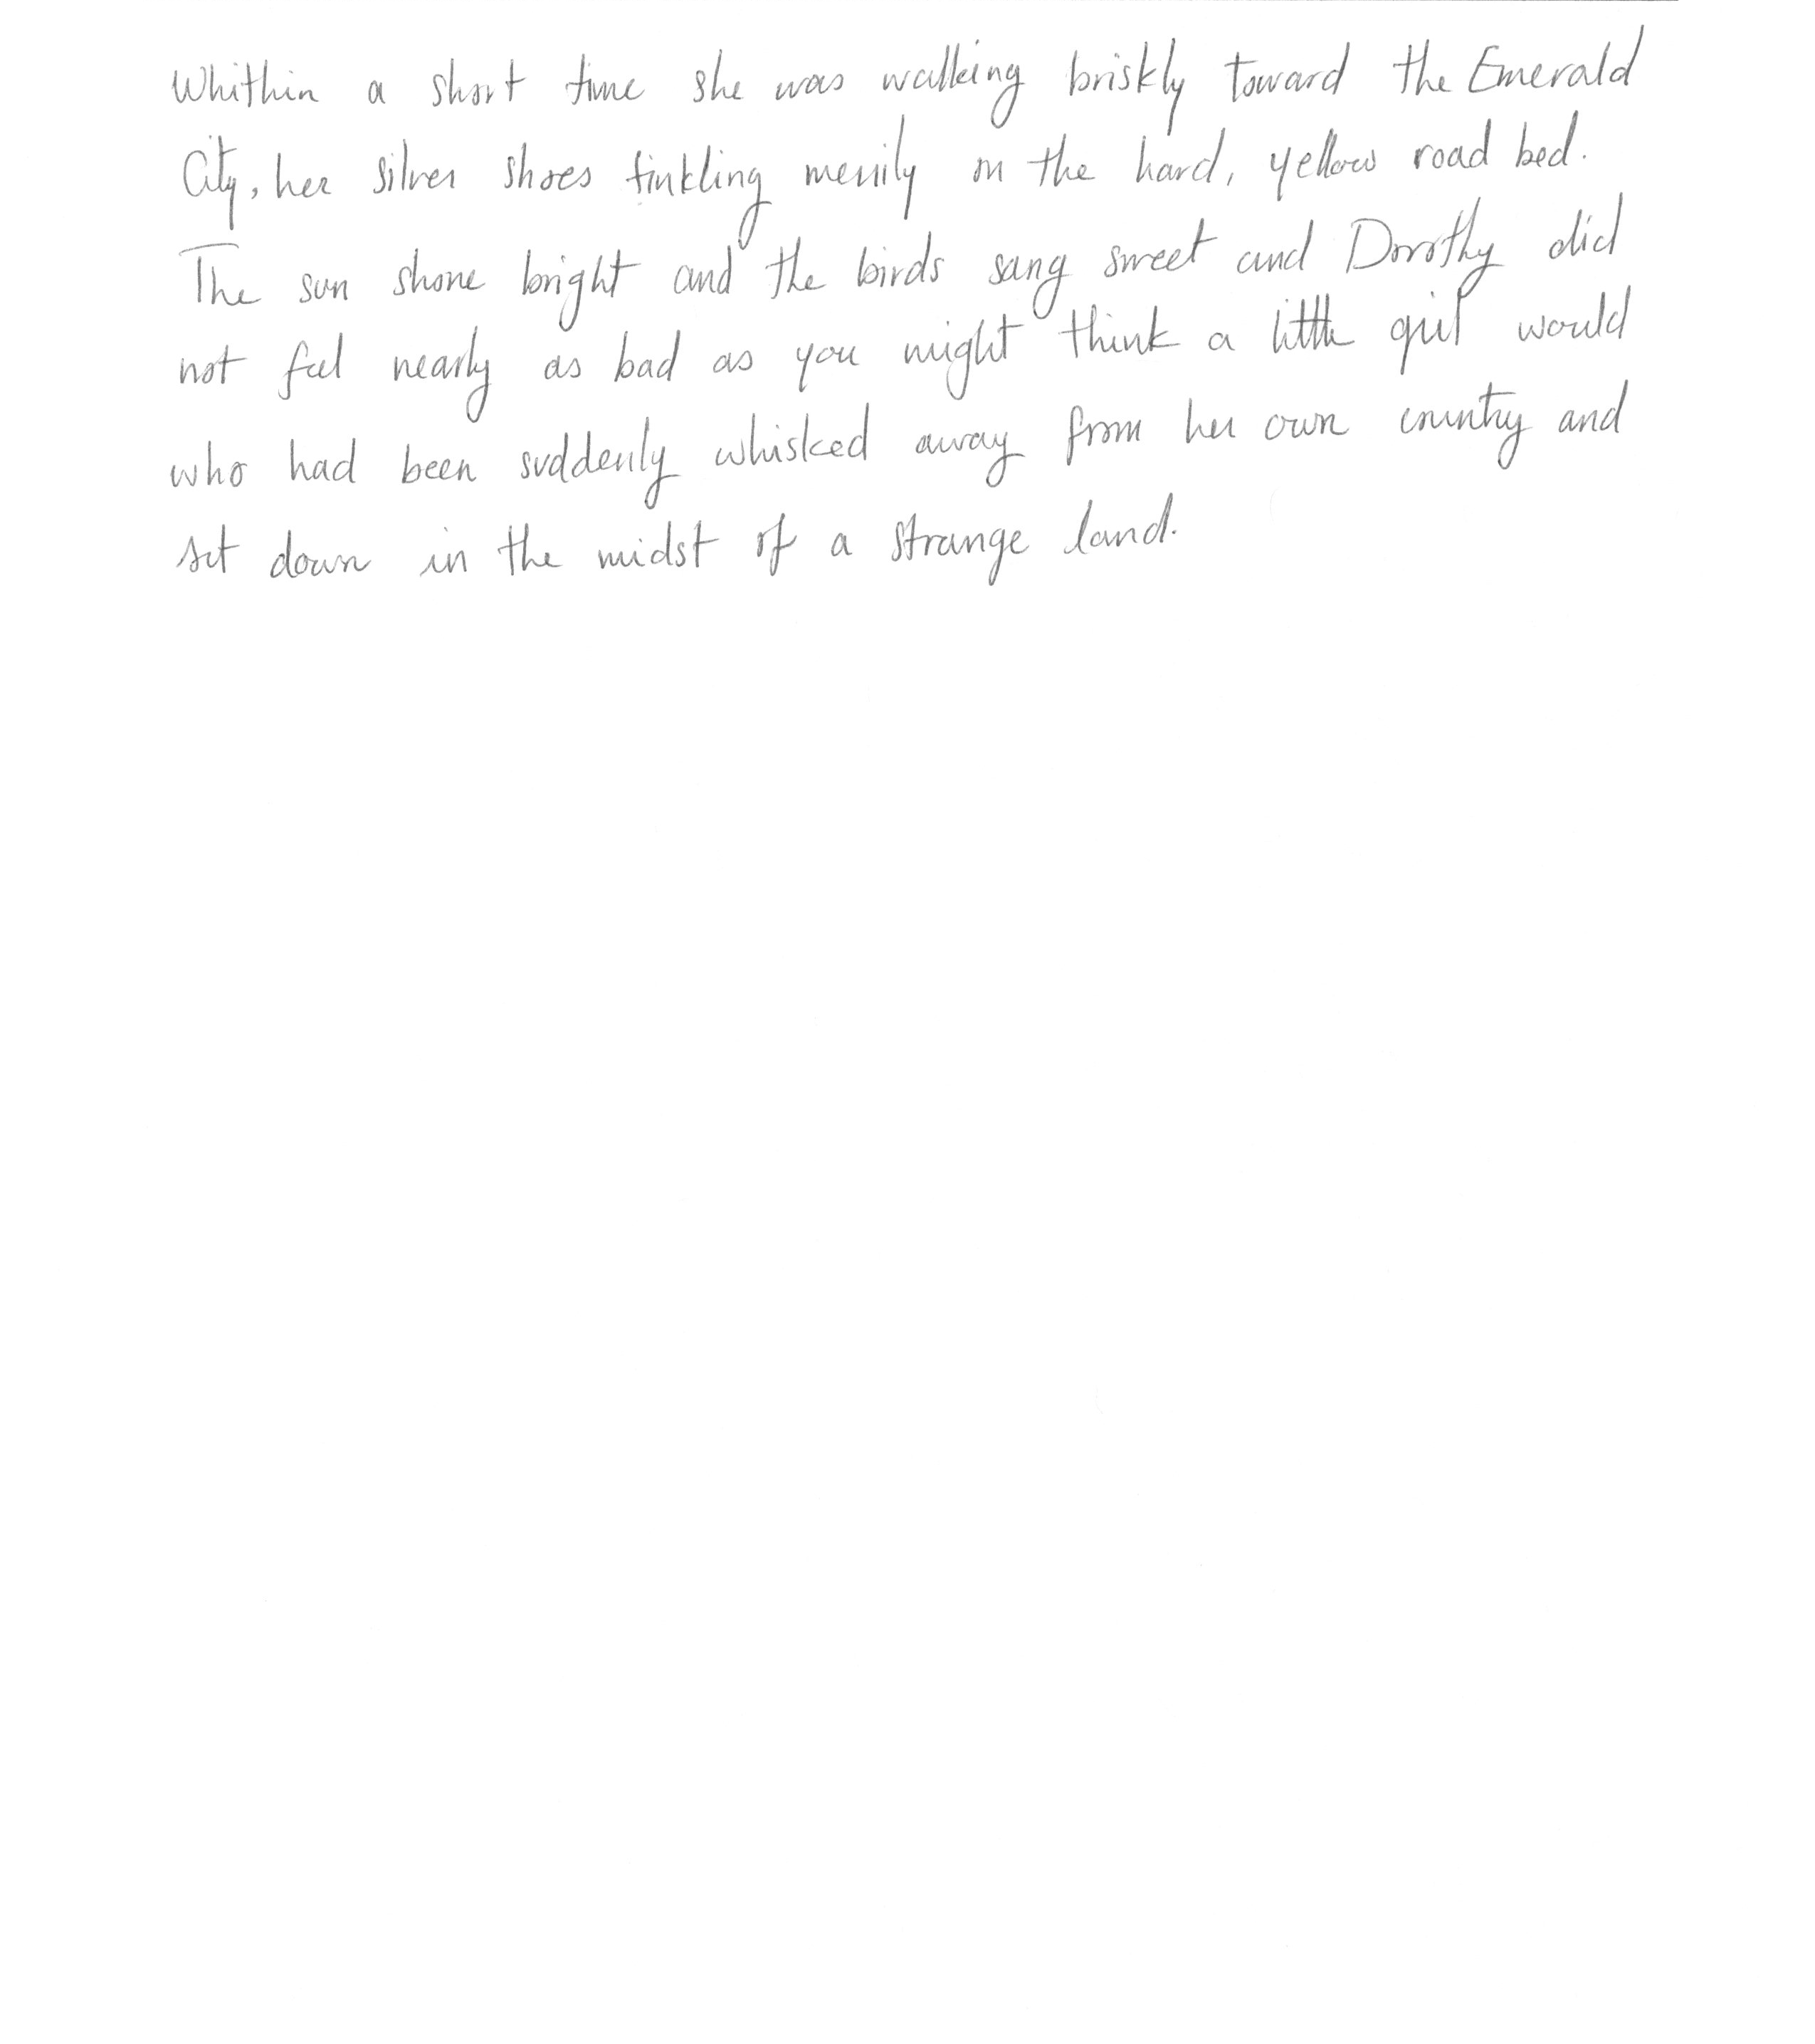 Whithin a short time she was walking briskly toward the Emerald
City, her silver shoes tinkling merrily on the hard, yellow road bed.
The sun shone bright and the birds sang sweet and Dorothy did
not feel nearly as bad as you might think a little girl would
who had been suddenly whisked away from her own country and
set down in the midst of a strange land.